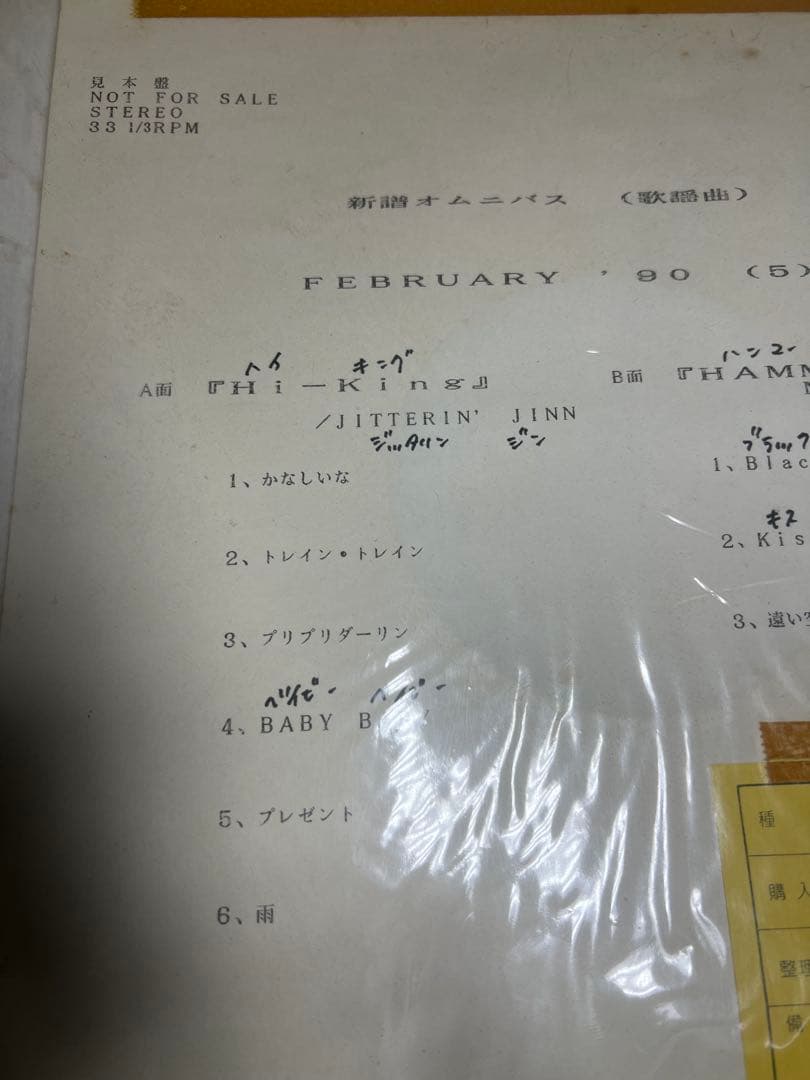 見本盤
NOT FOR SALE
STEREO
33 1/3RPM
新譜オムニバス （歌謡曲）
FEBRUARY '90 （5）
ヘイ キング
A面 『Hi－King』
／JITTERIN' JINN
ジッタリン ジン
1、かなしいな
2、トレイン・トレイン
3、プリプリダーリン
ベイビー
4、BABY
5、プレゼント
6、雨
B面 『HAM
ブラック
1、Blac
キス
2、Kis
3、遠い
種
購入
整理
備